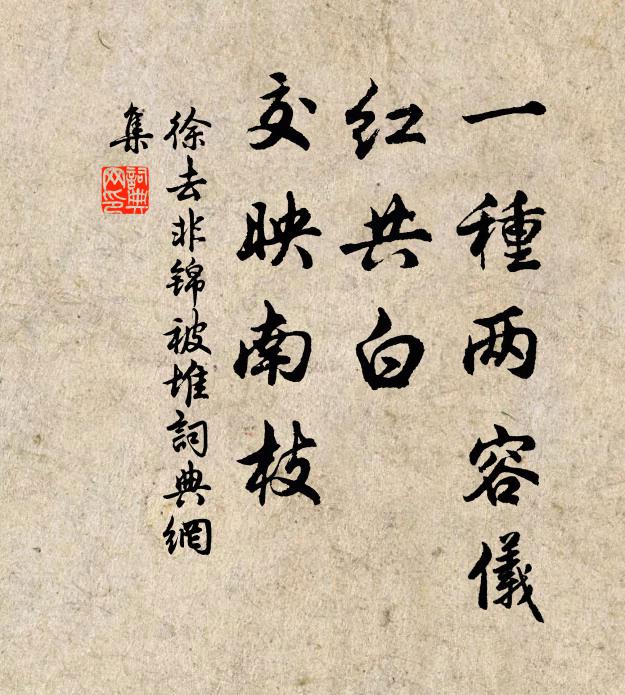 一種两容儀
红共白
交映南枝
徐去非锦被堆詞典網
集
詞典
网印